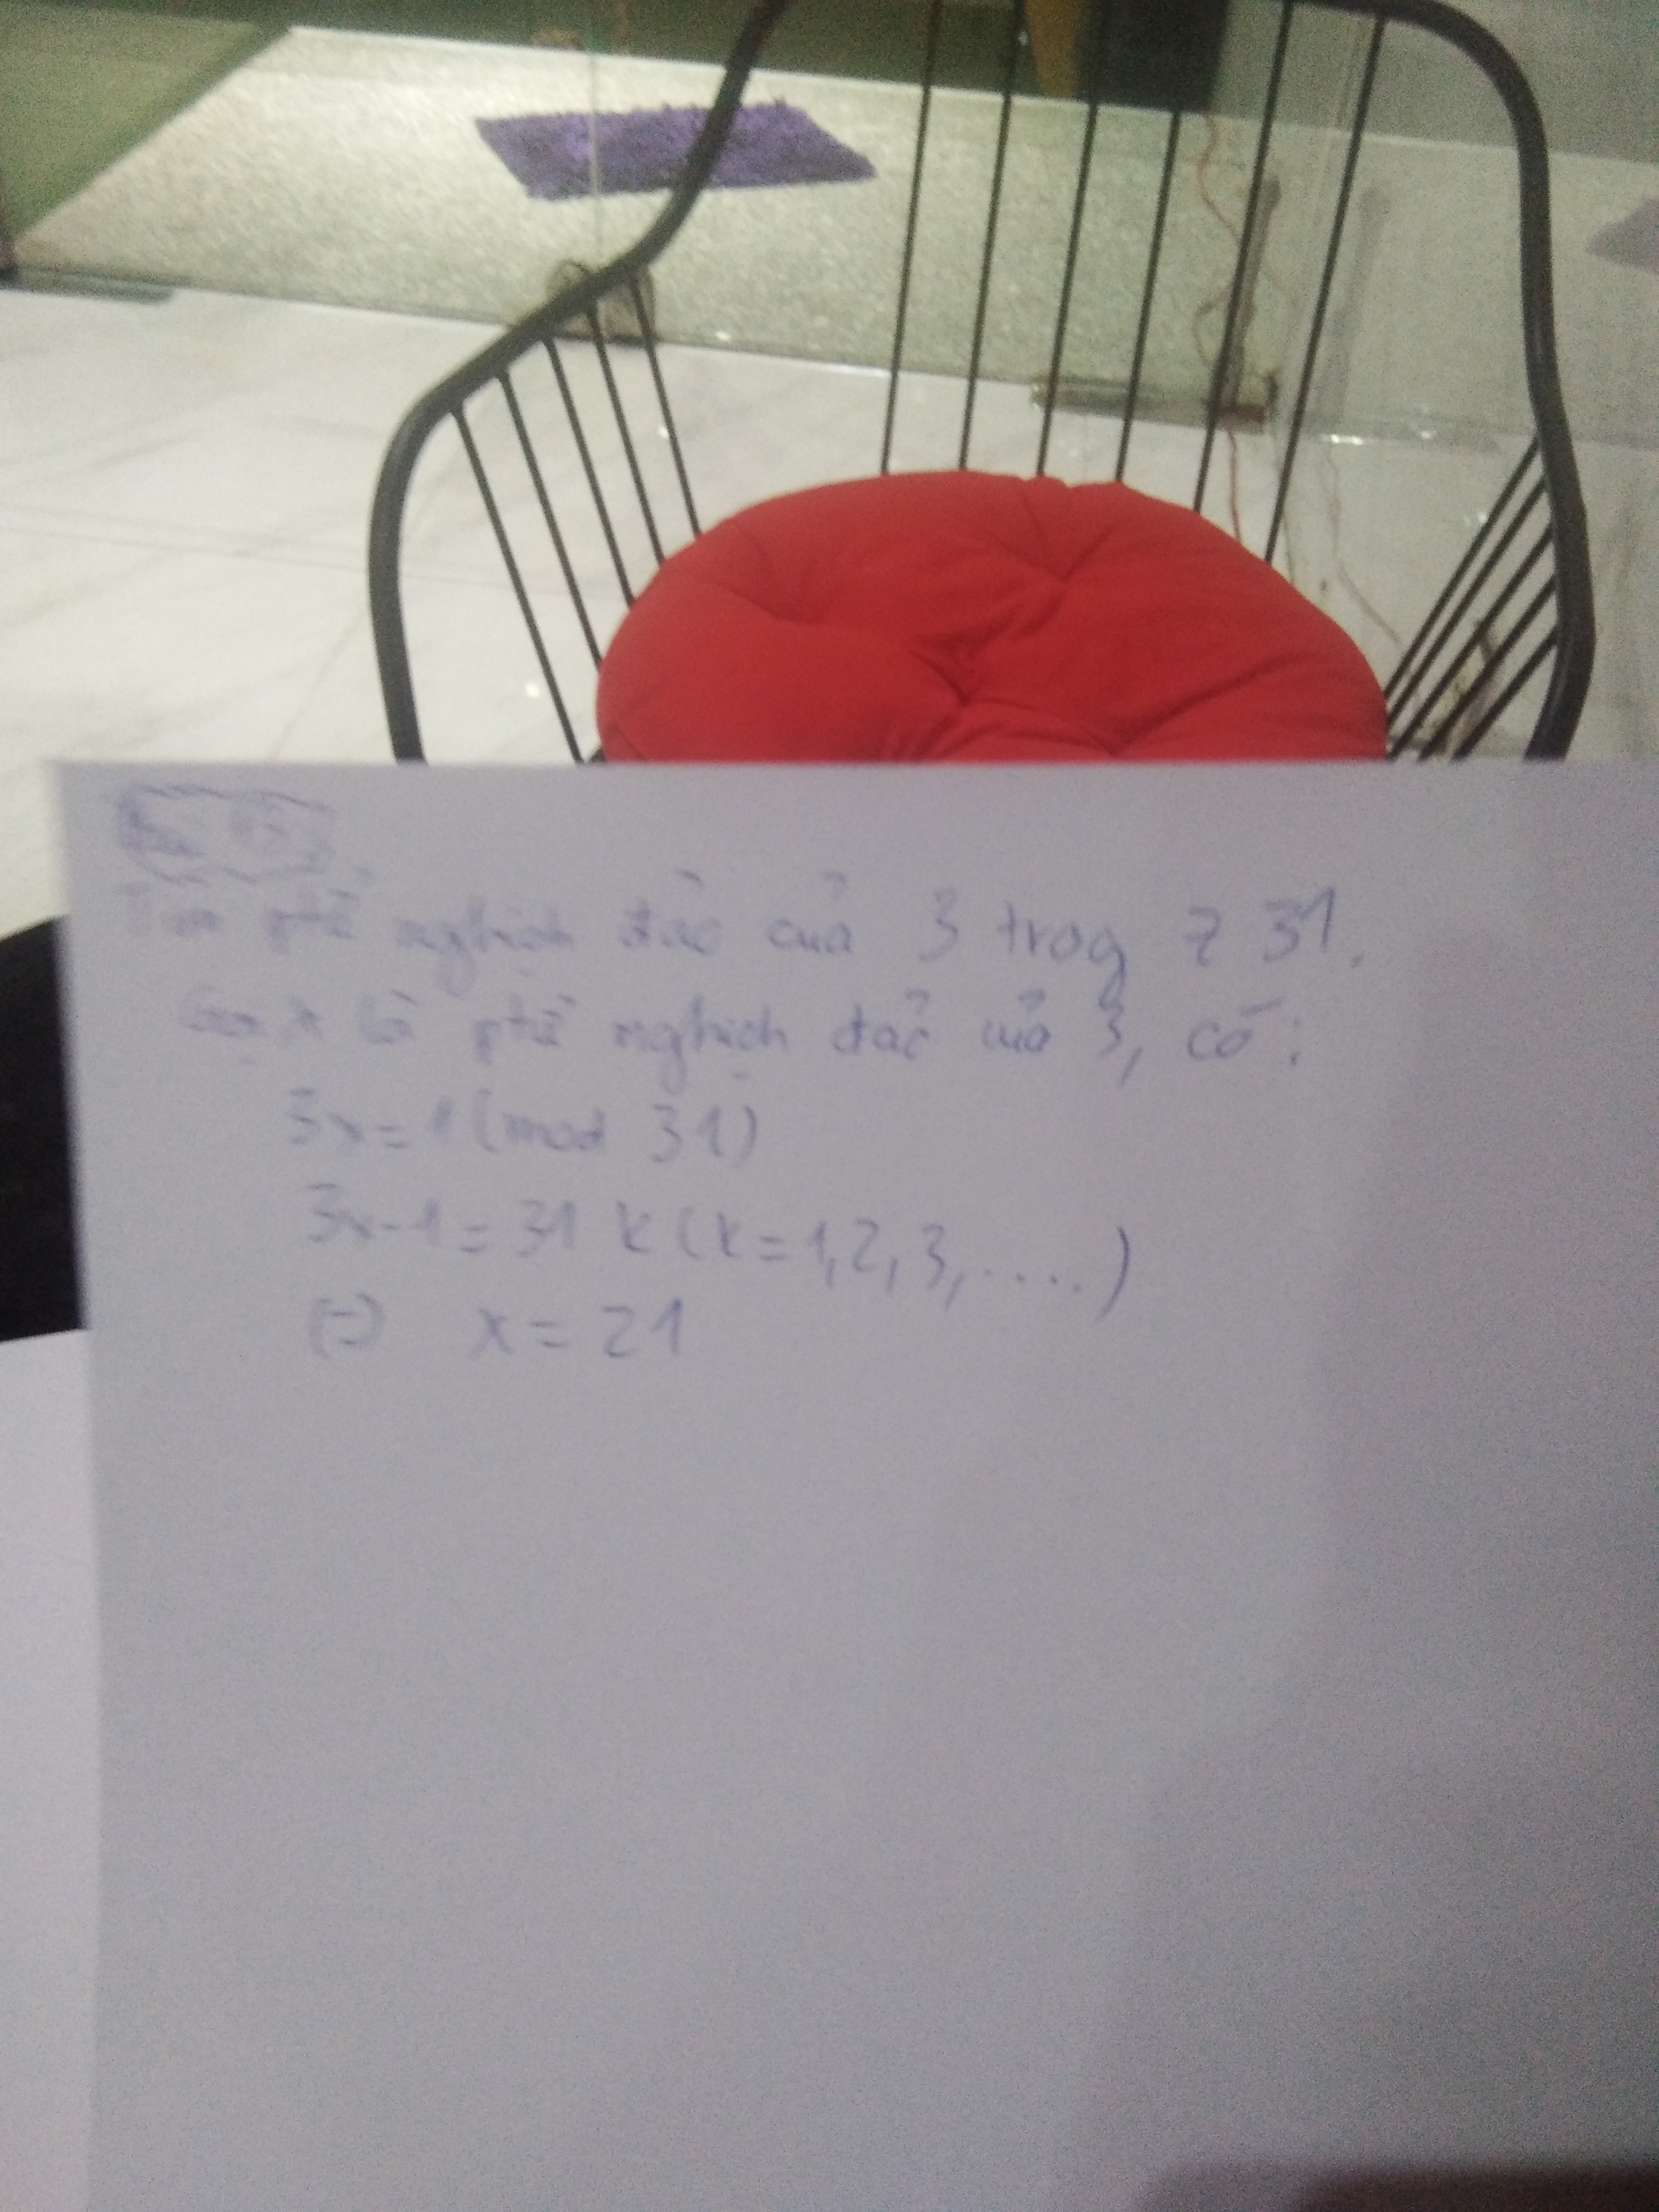 Tìm ptử nghịch đảo của 3 trog Z 31.
Gọi x là ptử nghịch đảo của 3, có:
3x = 1 (mod 31)
3x - 1 = 31 k (k = 1, 2, 3, .....)
(=) x = 21